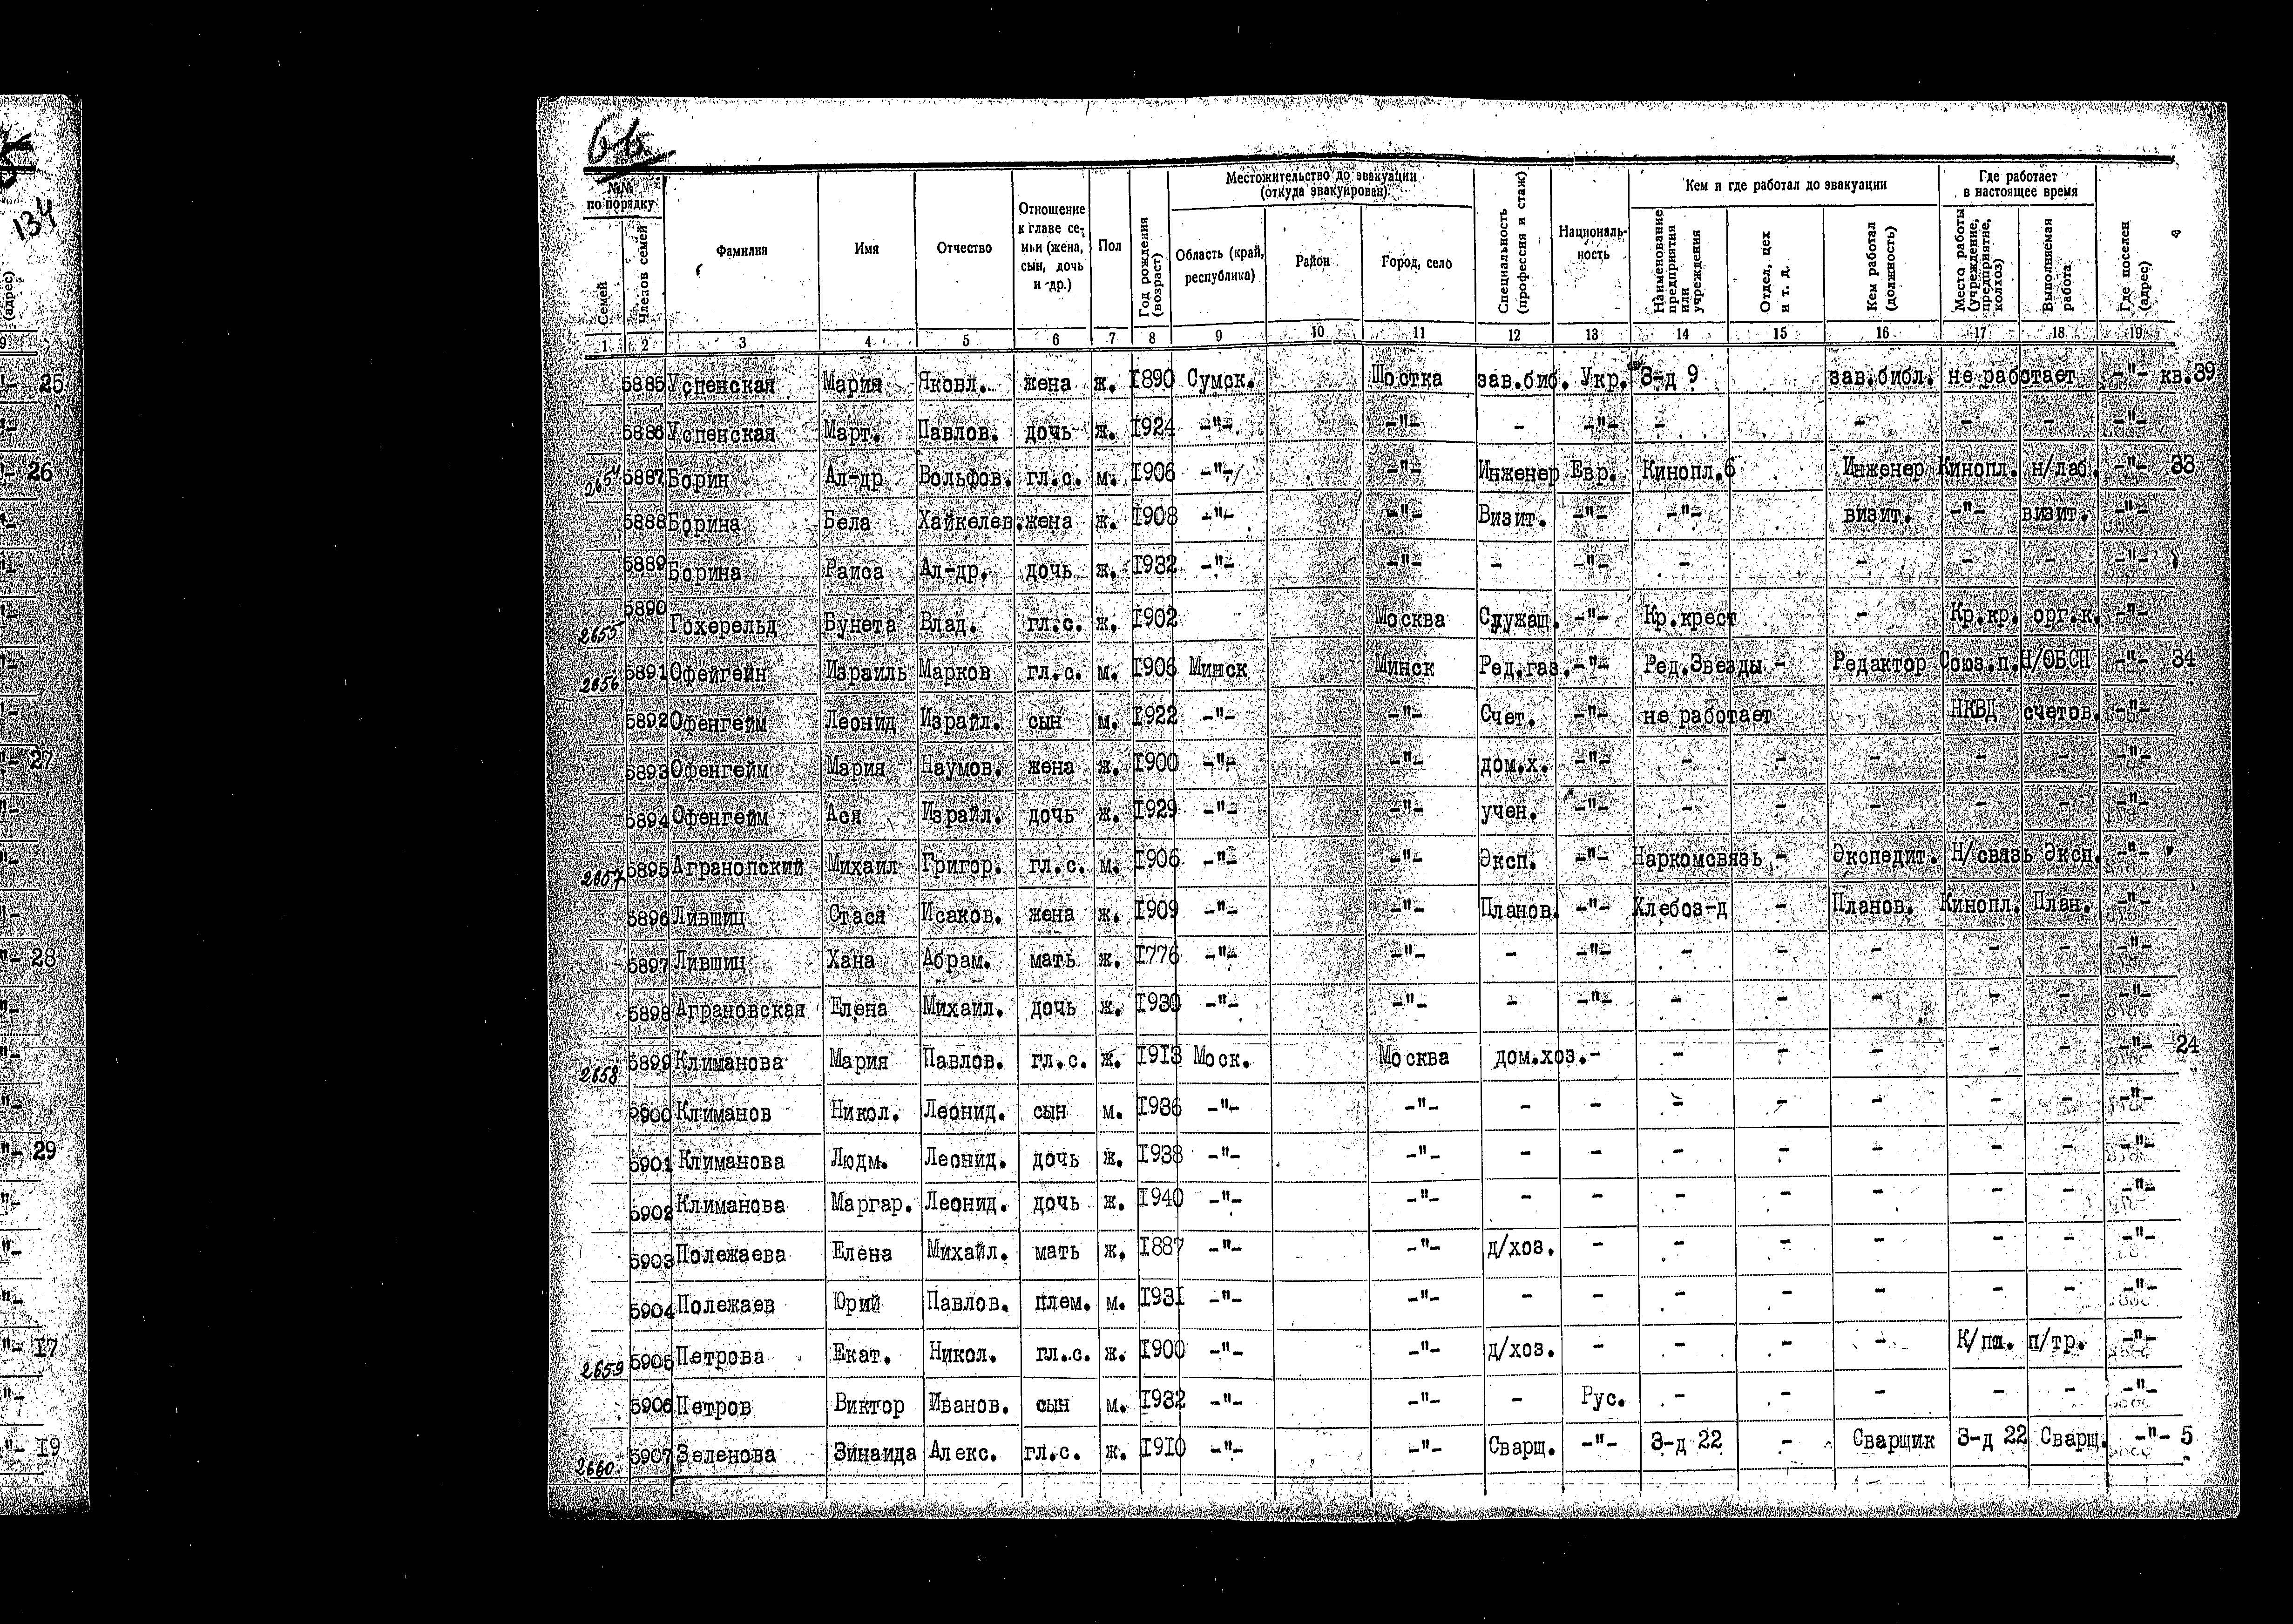 66
134
№№ по порядку
Семей
Членов семей
Фамилия
Имя
Отчество
Отношение к главе семьи (жена, сын, дочь и др.)
Пол
Год рождения (возраст)
Местожительство до эвакуации (откуда эвакуирован)
Область (край, республика)
Район
Город, село
Специальность (профессия и стаж)
Националь-ность
Кем и где работал до эвакуации
Наименование предприятия или учреждения
Отдел, цех и т. д.
Кем работал (должность)
Где работает в настоящее время
Место работы (учреждение, предприятие, колхоз)
Выполняемая работа
Где поселен (адрес)
1 2 3 4 5 6 7 8 9 10 11 12 13 14 15 16 17 18 19
5885 Успенская Мария Яковл. жена ж. 1890 Сумск. Шостка зав.биб. Укр. З-д 9 зав.библ. не работает -"- кв.39
5886 Успенская Март. Павлов. дочь ж. 1924 -"- -"- - -"- - - - - -"-
2654 5887 Борин Ал-др Вольфов. гл.с. м. 1906 -"- -"- Инженер Евр. Кинопл.6 Инженер Кинопл. н/лаб. -"- 33
5888 Борина Бела Хайкелев. жена ж. 1908 -"- -"- Визит. -"- -"- визит. -"- визит. -"-
5889 Борина Раиса Ал-др. дочь ж. 1932 -"- -"- - -"- - - - - -"-
2655 5890 Гохерельд Бунета Влад. гл.с. ж. 1902 Москва Служащ. -"- Кр.крест - Кр.кр. орг.к. -"-
2656 5891 Офейгейн Израиль Марков гл.с. м. 1906 Минск Минск Ред.газ. -"- Ред.Звезды - Редактор Союз.п. Н/ОБСП -"- 34
5892 Офенгейм Леонид Израйл. сын м. 1922 -"- -"- Счет. -"- не работает НКВД счетов. -"-
5893 Офенгейм Мария Наумов. жена ж. 1900 -"- -"- дом.х. -"- - - - - - -"-
5894 Офенгейм Ася Израйл. дочь ж. 1929 -"- -"- учен. -"- - - - - - -"-
2657 5895 Агранопский Михаил Григор. гл.с. м. 1906 -"- -"- Эксп. -"- Наркомсвязь - Экспедит. Н/связь Эксп. -"-
5896 Лившиц Стася Исаков. жена ж. 1909 -"- -"- Планов. -"- Хлебоз-д - Планов. Кинопл. План. -"-
5897 Лившиц Хана Абрам. мать ж. 1776 -"- -"- - -"- - - - - - -"-
5898 Аграновская Елена Михаил. дочь ж. 1930 -"- -"- - -"- - - - - - -"-
2658 5899 Климанова Мария Павлов. гл.с. ж. 1913 Моск. Москва дом.хоз. - - - - - - -"- 24
5900 Климанов Никол. Леонид. сын м. 1936 -"- -"- - - - - - - - -"-
5901 Климанова Людм. Леонид. дочь ж. 1938 -"- -"- - - - - - - - -"-
5902 Климанова Маргар. Леонид. дочь ж. 1940 -"- -"- - - - - - - - -"-
5903 Полежаева Елена Михайл. мать ж. 1887 -"- -"- д/хоз. - - - - - - -"-
5904 Полежаев Юрий Павлов. плем. м. 1931 -"- -"- - - - - - - - -"-
2659 5905 Петрова Екат. Никол. гл.с. ж. 1900 -"- -"- д/хоз. - - - - К/пл. п/тр. -"-
5906 Петров Виктор Иванов. сын м. 1932 -"- -"- - Рус. - - - - - -"-
2660 5907 Зеленова Зинаида Алекс. гл.с. ж. 1910 -"- -"- Сварщ. -"- З-д 22 - Сварщик З-д 22 Сварщ. -"- 5
(адрес)
25
26
27
28
29
17
19